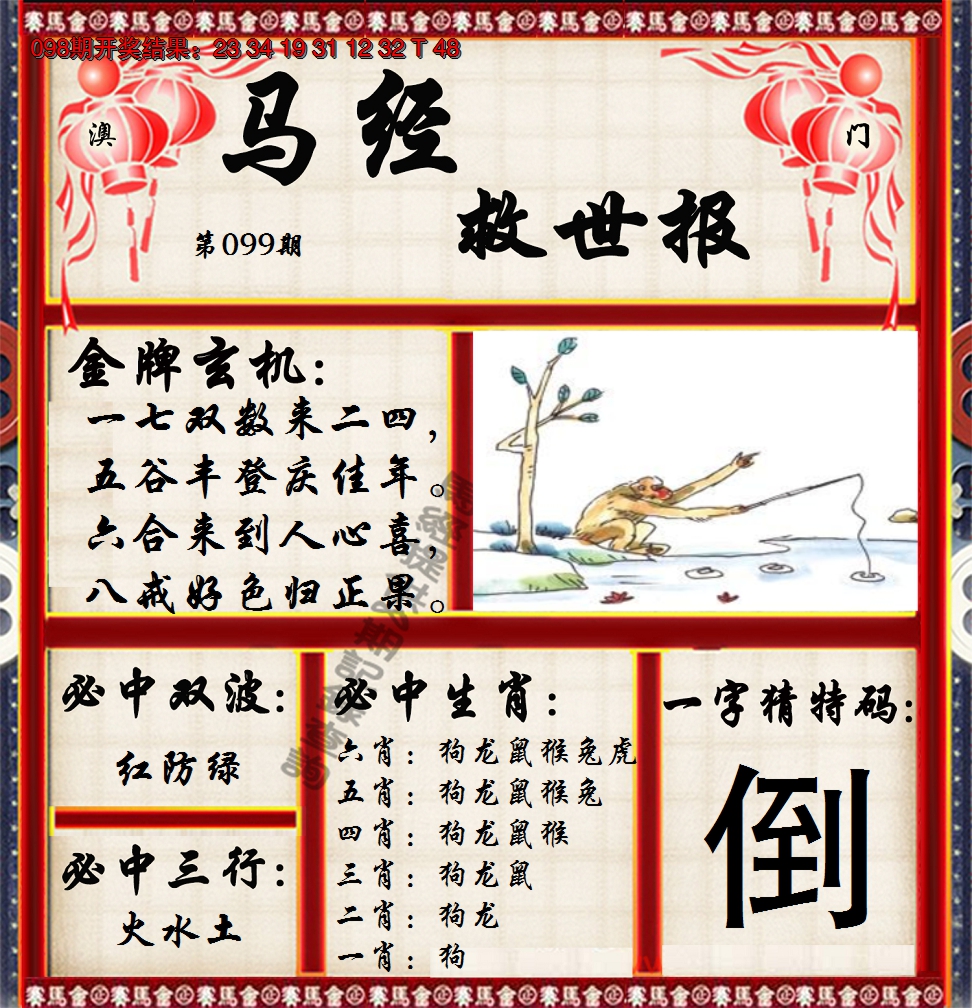 098期开奖结果：23 34 19 31 12 32 T 48
澳
门
马经
救世报
第099期
金牌玄机：
一七双数来二四，
五谷丰登庆佳年。
六合来到人心喜，
八戒好色归正果。
必中双波：
红防绿
必中三行：
火水土
必中生肖：
六肖：狗龙鼠猴兔虎
五肖：狗龙鼠猴兔
四肖：狗龙鼠猴
三肖：狗龙鼠
二肖：狗龙
一肖：狗
一字猜特码：
倒